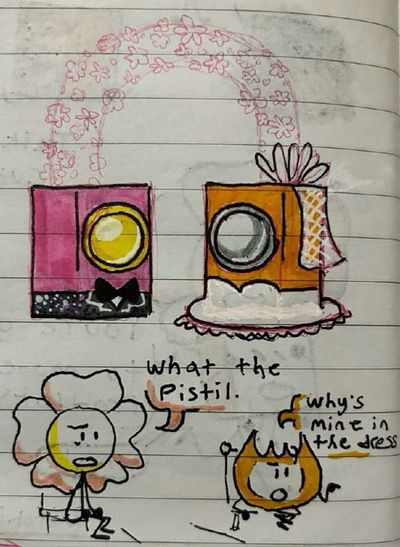 What the
Pistil.
Why's
mine in
the dress